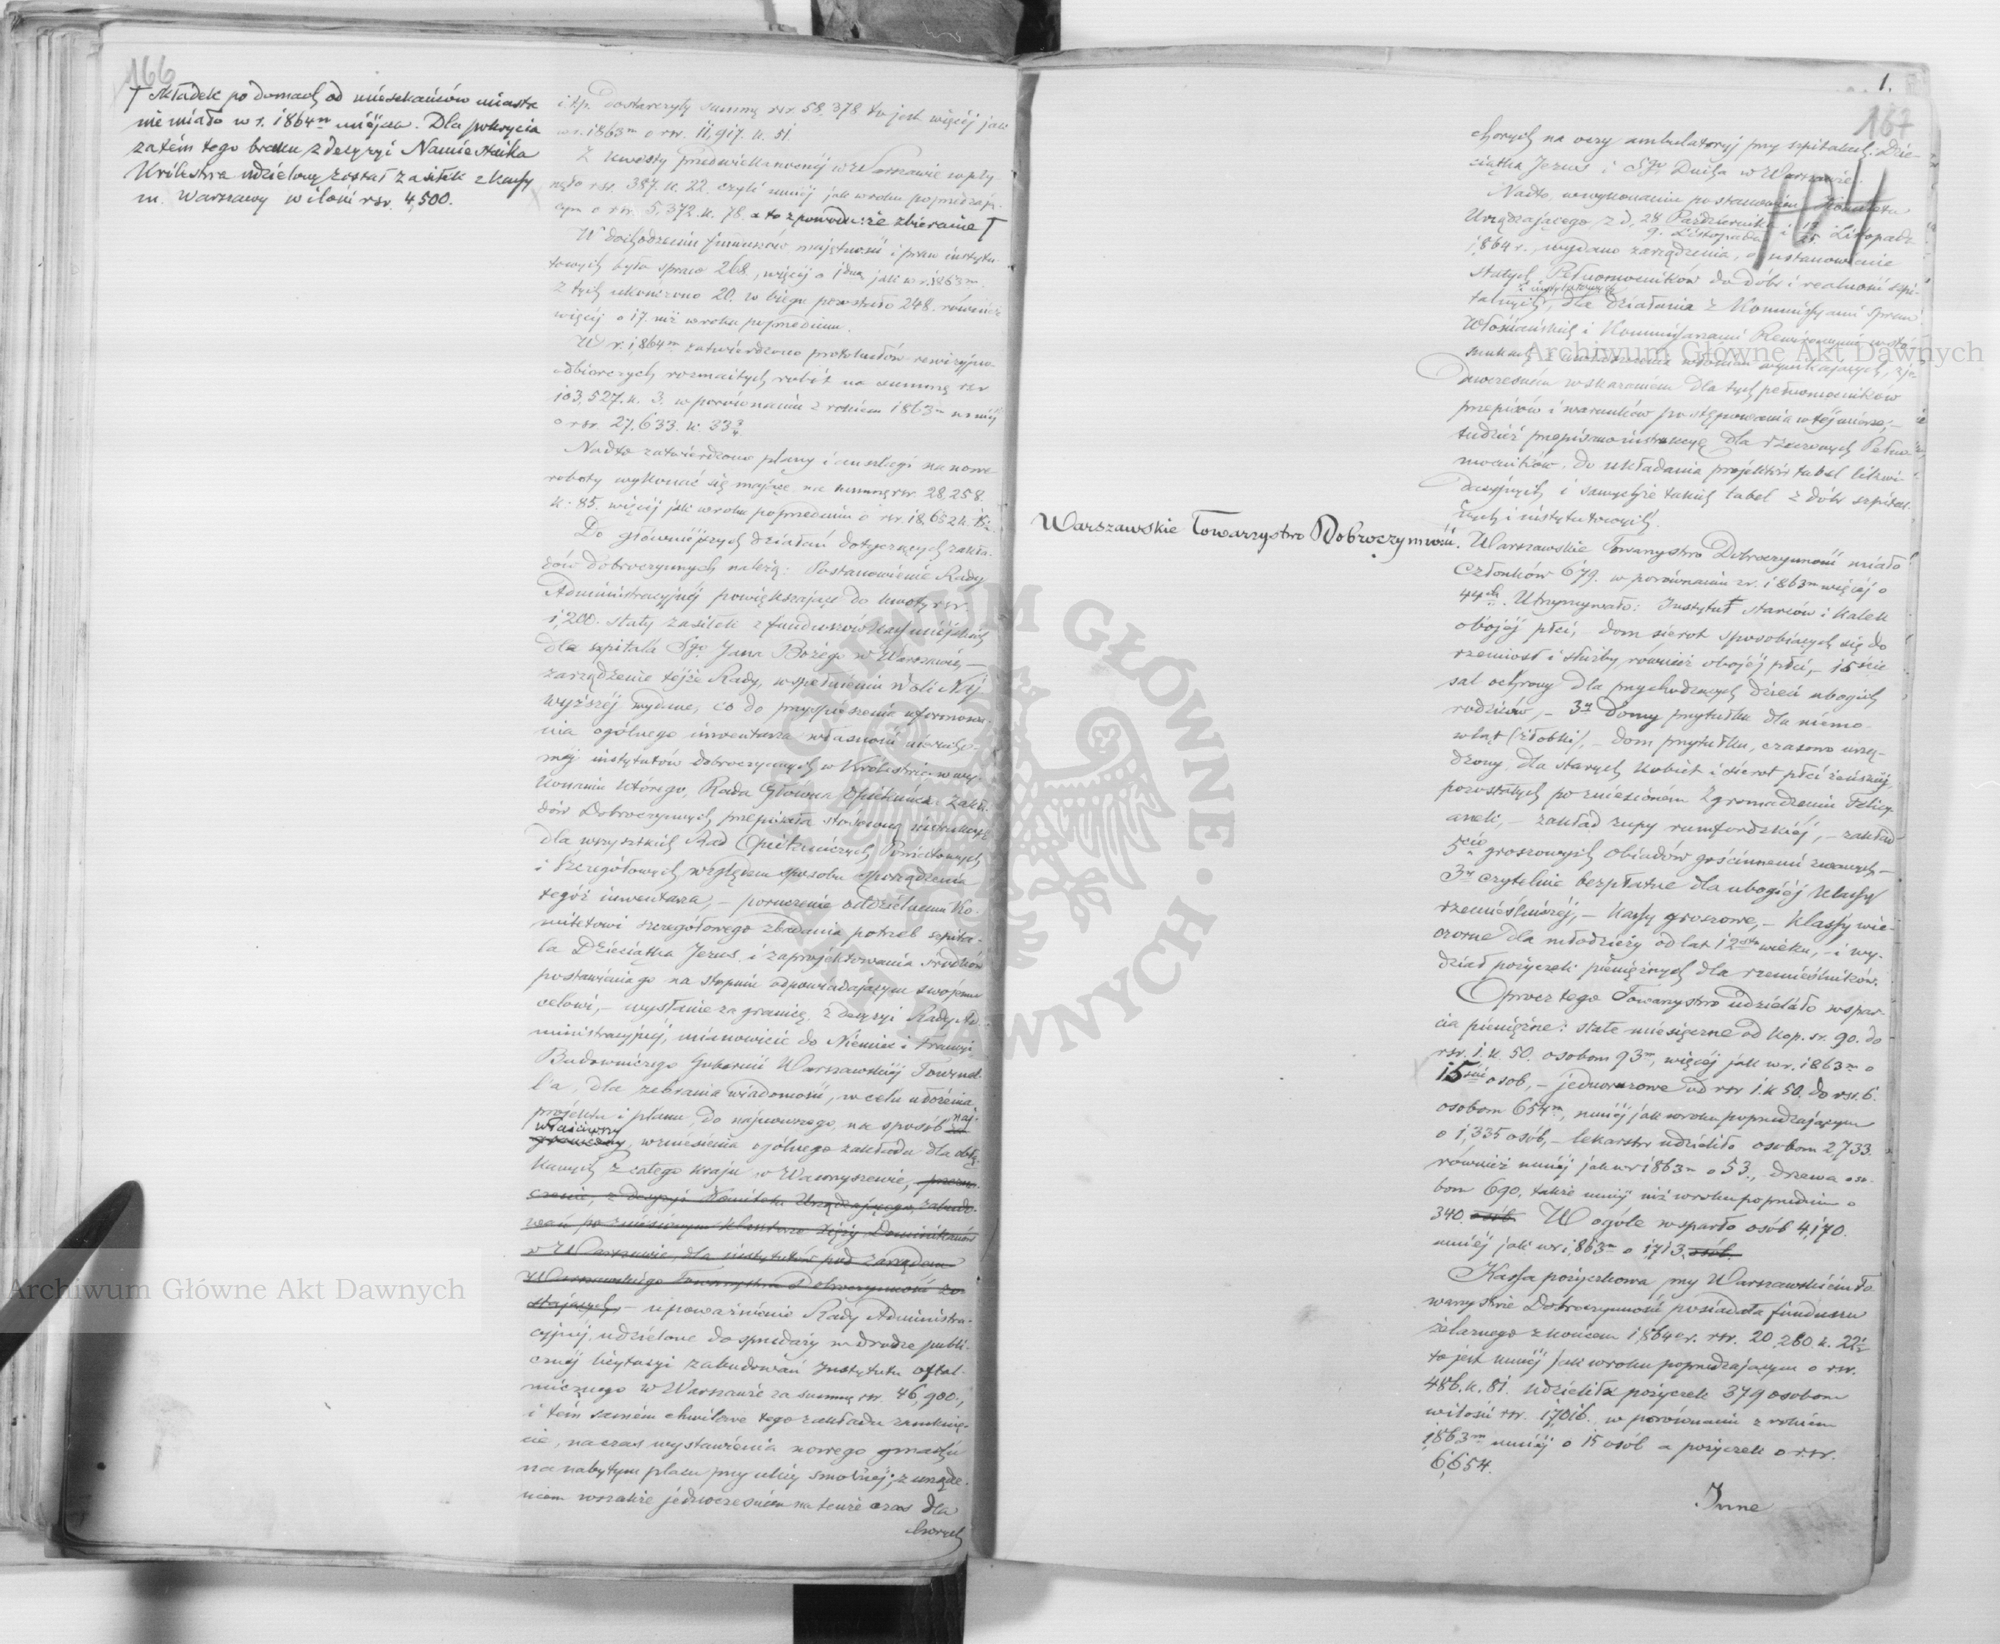 166
† składek po domach od mieszkańców miasta
nie miało w r. 1864m miejsca. Dla pokrycia
zatém tego braku z decyzyi Namiestnika
Królestwa udzielony został zasiłek z kassy
m. Warszawy w ilości rsr. 4,500.
i t.p. dostarczyły summę rsr. 58,378 to jest więcéj jak
w r. 1863m o rsr. 11,917. k. 51
Z kwesty przedwielkanocnéj w Warszawie wpły-
nęło rsr. 387. k. 22. czyli mniéj jak w roku poprzedzają-
cym o rsr. 5,372. k. 78. a to z powodu: że zbieranie †
W dochodzeniu funduszów majętności i praw instytu-
towych było spraw 268, więcéj o jedną jak w r. 1863m.
Z tych ukończono 20. w biegu pozostało 248. również
więcéj o 17. niż w roku poprzednim.
W r. 1864m zatwierdzono protokułów rewizyjno-
odbiorczych rozmaitych robót na summę rsr
103,527. k. 3. w porównaniu z rokiem 1863m mniéj
o rsr. 27,633. k. 33
Nadto zatwierdzono plany i anszlagi na nowe
roboty wykonać się mające na summę rsr. 28,258.
k. 85. więcéj jak w roku poprzednim o rsr. 18,652 k.
Do główniejszych działań dotyczących zakła-
dów dobroczynnych należą: Postanowienie Rady
Administracyjnéj powiększające do kwoty rsr.
1,200. stały zasiłek z funduszów kass miéjskich
dla szpitala Sgo Jana Bożego w Warszawie, —
zarządzenie téjże Rady, w spełnieniu Woli Naj-
wyższéj wydane, co do przyspieszenia uformowa-
nia ogólnego inwentarza własności nierucho-
méj instytutów dobroczynnych w Królestwie, w wy-
konaniu którego, Rada Główna Opiekuńcza Zakła-
dów Dobroczynnych przepisała stosowną instrukcyę
dla wszystkich Rad Opiekuńczych Powiatowych
i Szczegółowych względem sposobu sporządzenia
tegoż inwentarza, — poruczenie oddzielnemu Ko-
mitetowi szczegółowego zbadania potrzeb szpita-
la Dzieciątka Jezus i zaprojektowania środków
postawienia go na stopniu odpowiadającym swojemu
celowi, — wysłanie za granicę, z decyzyi Rady Ad-
ministracyjnéj, mianowicie do Niemiec i Francyi
Budowniczego Gubernii Warszawskiéj
dla zebrania wiadomości, w celu ułożenia
projektu i planu, do najnowszego, na sposób naj-
właściwszy
wzniesienia ogólnego zakładu dla obłą-
kanych z całego kraju w Warszawie, — porucze-
czenie, z decyzyi Komitetu Urządzającego, zabudo-
wań po zniesionym klasztorze Xięży Dominikanów
w Warszawie, dla instytutów pod zarządem
Warszawskiego Towarzystwa Dobroczynności zo-
stających, — upoważnienie Rady Administra-
cyjnéj, udzielone do sprzedaży w drodze publi-
cznéj licytacyi zabudowań Instytutu oftal-
micznego w Warszawie za summę rsr. 46,900.,
i tém samém chwilowe tego zakładu zamknię-
cie, na czas wystawienia nowego gmachu
na nabytym placu przy ulicy Smolnéj, z urządze-
niem wszakże jednocześnie na tenże czas dla
chorych
1.
167
104
chorych na oczy ambulatoryj przy szpitalach: Dzie-
ciątka Jezus i Sgo Ducha w Warszawie.
Nadto, w wykonaniu postanowień Komitetu
Urządzającego, z d. 28 Października / 9. Listopada i 13/25 Listopada
1864 r., wydano zarządzenia, o ustanowienie
stałych Pełnomocników do dóbr i realności szpi-
talnych i instytutowych, dla działania z Kommissyami Spraw
Włościańskich i Kommissarzami Rewirowemi w sto-
sunkach uwłaszczenia włościan wynikających, z je-
dnoczesném wskazaniem dla tych pełnomocników
przepisów i warunków postępowania w téj mierze, —
tudzież przepisano instrukcyę dla rzeczonych Pełno-
mocników, do układania projektów tabel likwi-
dacyjnych i samychże takich tabel z dóbr szpital-
nych i instytutowych.
Warszawskie Towarzystwo Dobroczynności.
Warszawskie Towarzystwo Dobroczynności miało
Członków 679. w porównaniu z r. 1863m więcéj o
44ch. Utrzymywało: Instytut starców i kalek
obojéj płci, — dom sierot sposobiących się do
rzemiosł i służby również obojéj płci, — 15ście
sal ochrony dla przychodzących dzieci ubogich
rodziców, — 3y Domy przytułku dla niemo-
wląt (żłobki), — dom przytułku, czasowo urzą-
dzony, dla starych kobiet i sierot płci żeńskiéj,
pozostałych po zniesioném Zgromadzeniu Felicy-
anek, — zakład zupy rumfordzkiéj, — zakład
5cio groszowych obiadów gościnnemi zwanych, —
3y czytelnie bezpłatne dla ubogiéj klassy
rzemieślniczéj, — kassy groszowe, — klassy wie-
czorne dla młodzieży od lat 12stu wieku, — i wy-
dział pożyczek pieniężnych dla rzemieślników.
Oprócz tego Towarzystwo udzielało wspar-
cia pieniężne: stałe miesięczne od kop. sr. 90. do
rsr. 1. k. 50. osobom 93m, więcéj jak w r. 1863m o
15ście osób, — jednorazowe od rsr 1. k 50. do rsr. 6.
osobom 654m, mniéj jak w roku poprzedzającym
o 1,335 osób, — lekarstw udzieliło osobom 2,733.
również mniéj jak w r 1863m o 53., drzewa oso-
bom 690, także mniéj niż w roku poprzednim o
340. osób. W ogóle wsparło osób 4,170.
mniéj jak w r. 1863m o 1713. osób.
Kassa pożyczkowa przy Warszawskiém To-
warzystwie Dobroczynności posiadała funduszu
żelaznego z końcem 1864 r. rsr. 20,260. k. 22½
to jest mniéj jak w roku poprzedzającym o rsr.
486. k. 81. udzieliła pożyczek 379 osobom
w ilości rsr. 17,016., w porównaniu z rokiem
1863m mniéj o 15 osób a pożyczek o rsr.
6,654.
Inne
Archiwum Główne Akt Dawnych
Archiwum Główne Akt Dawnych
ARCHIWUM GŁÓWNE AKT DAWNYCH